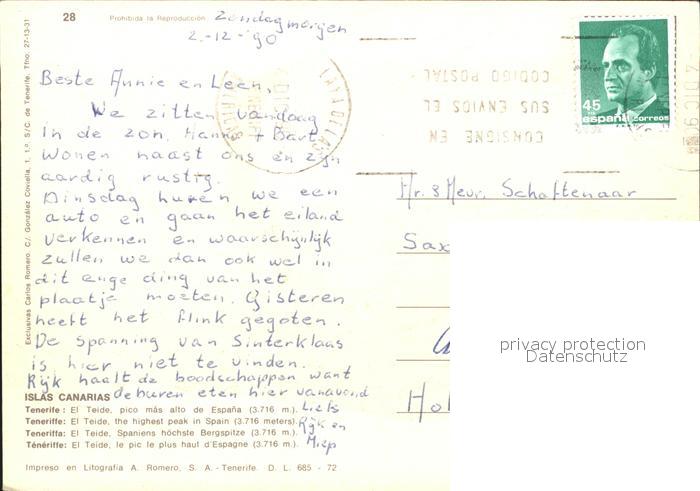 28
Prohibida la Reproducción.
Zondagmorgen
2.-12-'90
Beste Annie en Leen,
We zitten vandaag
In de zon. Hanny + Bart
Wonen naast ons en zijn
aardig rustig.
Dinsdag huren we een
auto en gaan het eiland
verkennen en waarschijnlijk
zullen we dan ook wel in
dit enge ding van het
plaatje moeten. Gisteren
heeft het flink gegoten.
De spanning van Sinterklaas
is hier niet te vinden.
Rijk haalt de boodschappen want
de buren eten hier vanavond
Liefs
Rijk en
Miep
ISLAS CANARIAS
Tenerife: El Teide, pico más alto de España (3.716 m.).
Tenerife: El Teide, the highest peak in Spain (3.716 meters).
Teneriffa: El Teide, Spaniens höchste Bergspitze (3.716 m.).
Ténériffe: El Teide, le pic le plus haut d'Espagne (3.716 m.).
Impreso en Litografía A. Romero, S. A. - Tenerife. D. L. 685 - 72
Exclusivas Carlos Romero. C/. González Coviella, 1, 1.º. S/C. de Tenerife. Tfno. 27-13-31
CONSIGNE EN
SUS ENVIOS EL
CODIGO POSTAL
45
españa correos
Mr. & Mevr. Schaftenaar
Sax
Hol
privacy protection
Datenschutz